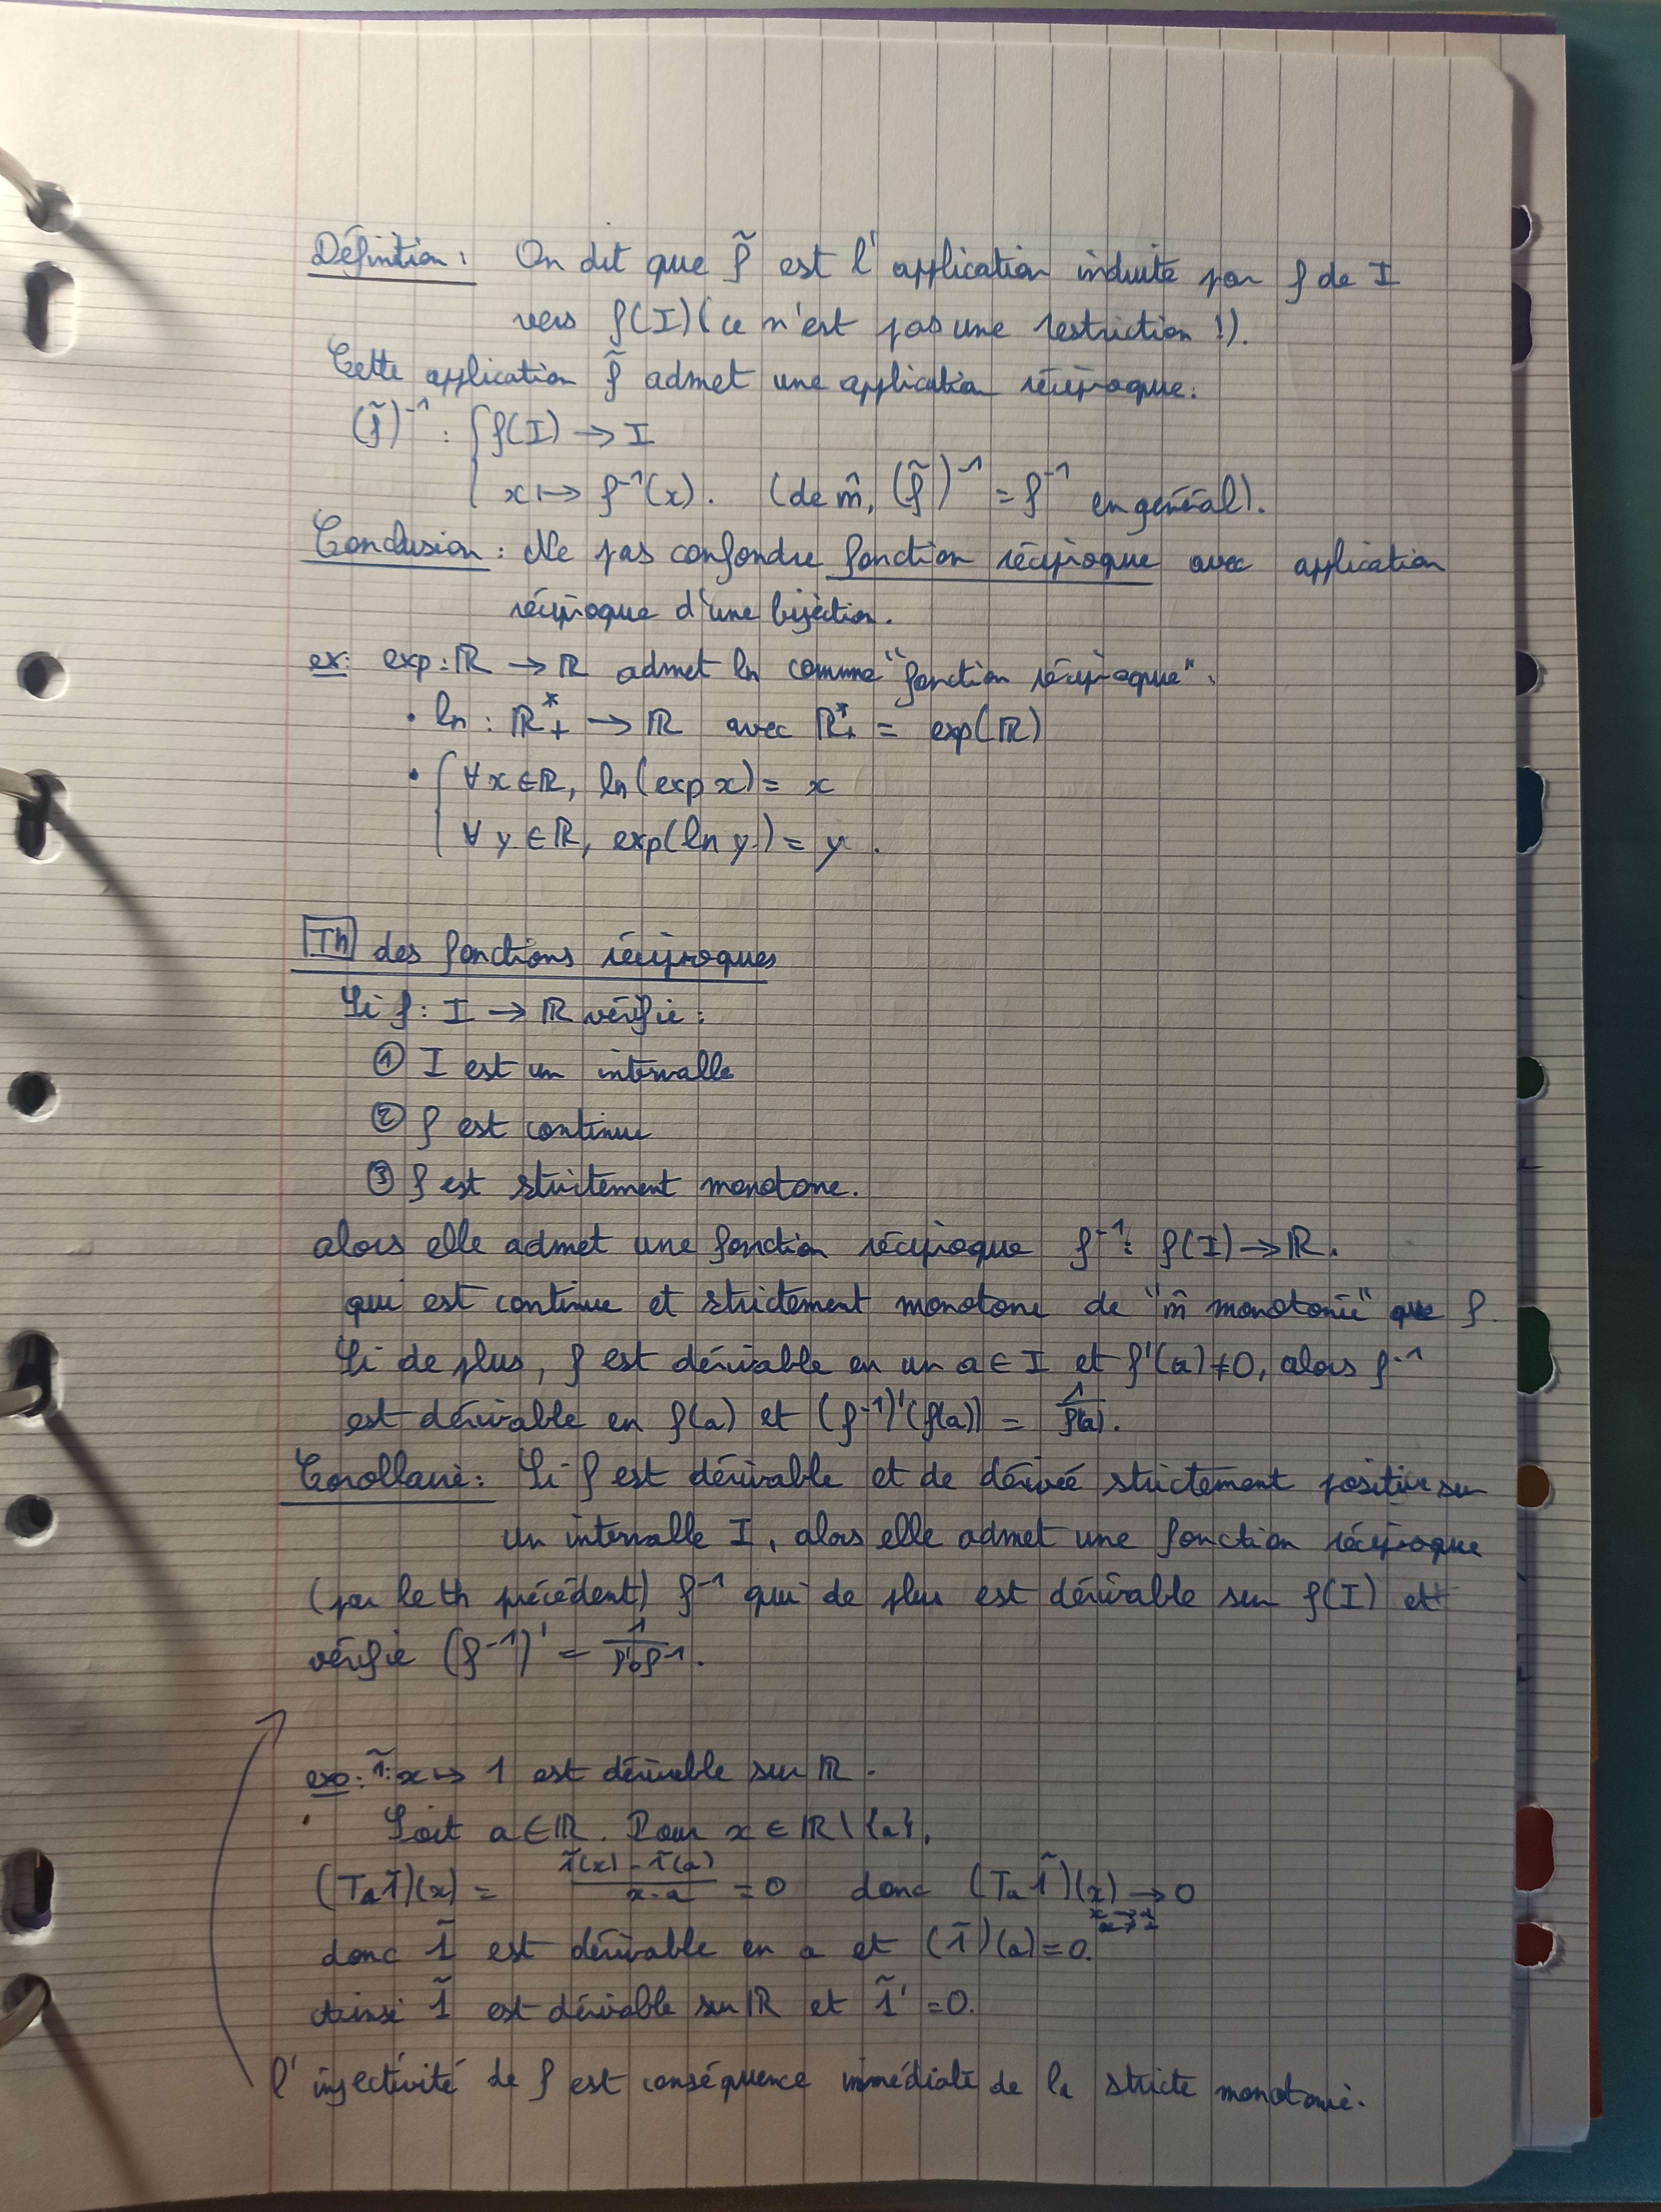 Définition : On dit que f̃ est l'application induite par f de I
vers f(I) (ce n'est pas une restriction !).
Cette application f̃ admet une application réciproque :
(f̃)⁻¹ : { f(I) → I
x ↦ f⁻¹(x). (de m̂, (f̃)⁻¹ = f⁻¹ en général).
Conclusion : Ne pas confondre fonction réciproque avec application
réciproque d'une bijection.
ex : exp : ℝ → ℝ admet ln comme "fonction réciproque".
• ln : ℝ*₊ → ℝ avec ℝ*₊ = exp(ℝ)
• { ∀ x ∈ ℝ, ln(exp x) = x
∀ y ∈ ℝ, exp(ln y) = y.
Th des fonctions réciproques
Si f : I → ℝ vérifie :
① I est un intervalle
② f est continue
③ f est strictement monotone.
alors elle admet une fonction réciproque f⁻¹ : f(I) → ℝ.
qui est continue et strictement monotone de "m̂ monotonie" que f.
Si de plus, f est dérivable en un a ∈ I et f'(a) ≠ 0, alors f⁻¹
est dérivable en f(a) et (f⁻¹)'(f(a)) = 1/f'(a).
Corollaire : Si f est dérivable et de dérivée strictement positive sur
un intervalle I, alors elle admet une fonction réciproque
(par le th précédent) f⁻¹ qui de plus est dérivable sur f(I) et
vérifie (f⁻¹)' = 1/f'∘f⁻¹.
exo : 1̃ : x ↦ 1 est dérivable sur ℝ.
• Soit a ∈ ℝ. Pour x ∈ ℝ \ {a},
(Tₐ1̃)(x) = (1̃(x) - 1̃(a))/(x - a) = 0 donc (Tₐ1̃)(x) → 0
donc 1̃ est dérivable en a et (1̃)(a) = 0.
Ainsi 1̃ est dérivable sur ℝ et 1̃' = 0.
l'injectivité de f est conséquence immédiate de la stricte monotonie.